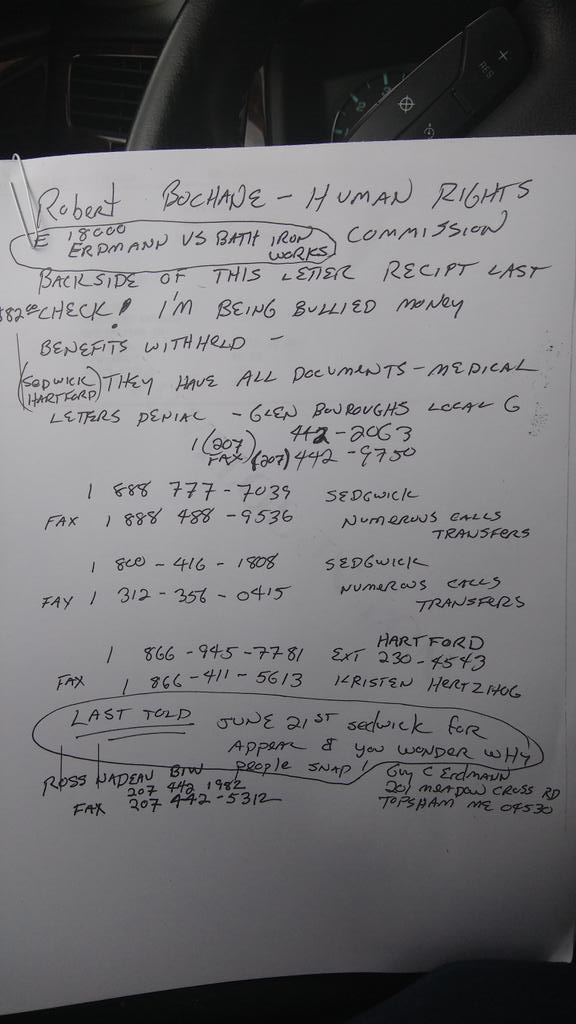 RES +
Robert BOCHANE - HUMAN RIGHTS
E 18000
ERDMANN VS BATH IRON WORKS COMMISSION
BACKSIDE OF THIS LETTER RECIPT LAST
$82.00 CHECK! I'M BEING BULLIED MONEY
BENEFITS WITHHELD -
(SEDWICK HARTFORD) THEY HAVE ALL DOCUMENTS - MEDICAL
LETTERS DENIAL - GLEN BURROUGHS LOCAL 6
1 (207) 442-2063
FAX (207) 442-9750
1 888 777-7039 SEDGWICK
FAX 1 888 488-9536 NUMEROUS CALLS
TRANSFERS
1 800-416-1808 SEDGWICK
FAX 1 312-356-0415 NUMEROUS CALLS
TRANSFERS
HARTFORD
1 866-945-7781 EXT 230-4543
FAX 1 866-411-5613 KRISTEN HERTZHOG
LAST TOLD JUNE 21ST sedwick for
APPEAL & YOU WONDER WHY
people SNAP!
ROSS NADEAU BIW
207 442 1982
FAX 207 442-5312
Guy C Erdmann
201 MEADOW CROSS RD
TOPSHAM ME 04530